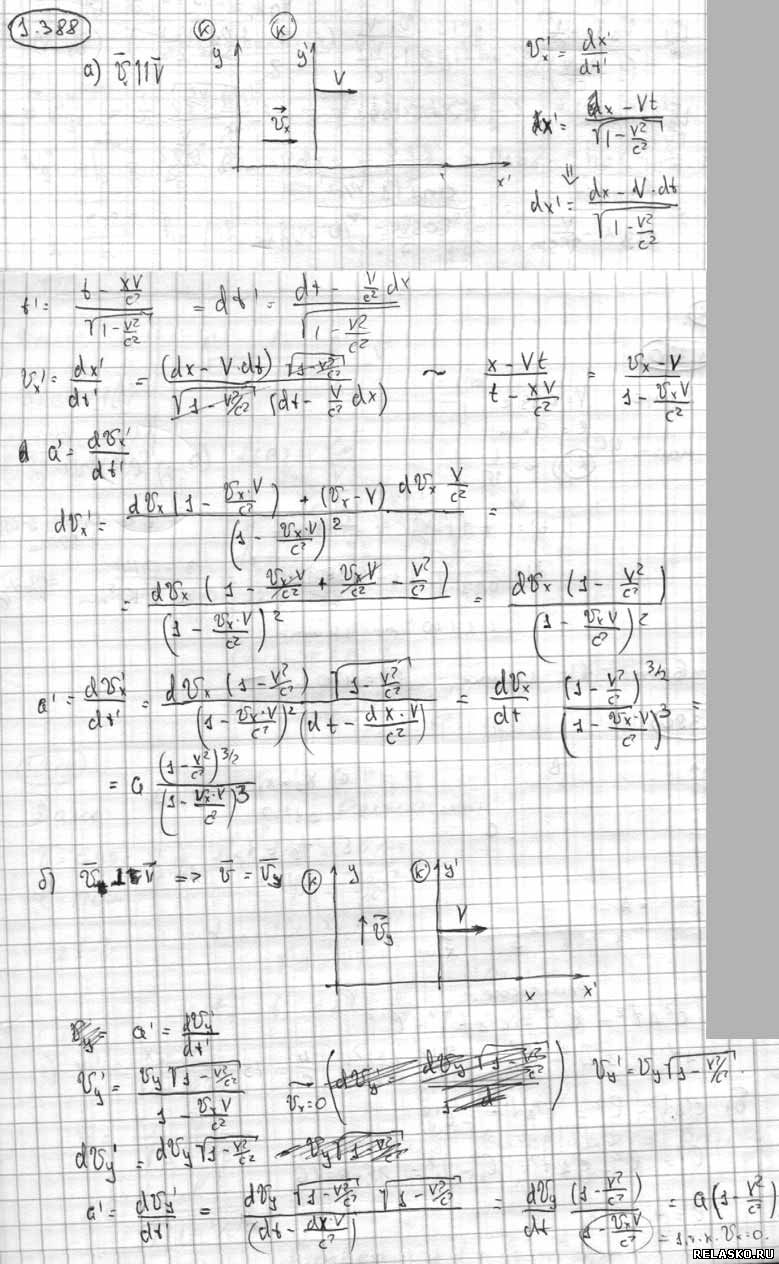 1.388
а) v̄ ∥ V̄
K K'
y y'
V
v⃗ₓ
x'
vₓ' = dx'/dt'
dx' = (dx − Vt)/√(1 − V²/c²)
⇓
dx' = (dx − V·dt)/√(1 − V²/c²)
t' = (t − xV/c²)/√(1 − V²/c²) = dt' = (dt − V/c² dx)/√(1 − V²/c²)
vₓ' = dx'/dt' = (dx − V·dt) √(1 − V²/c²) / (√(1 − V²/c²) (dt − V/c² dx)) ~ (x − Vt)/(t − xV/c²) = (vₓ − V)/(1 − vₓV/c²)
a' = dvₓ'/dt'
dvₓ' = (dvₓ (1 − vₓ·V/c²) + (vₓ − V) dvₓ V/c²)/(1 − vₓ·V/c²)² =
= dvₓ (1 − vₓ·V/c² + vₓV/c² − V²/c²)/(1 − vₓ·V/c²)² = dvₓ (1 − V²/c²)/(1 − vₓV/c²)²
a' = dvₓ'/dt' = dvₓ (1 − V²/c²) √(1 − V²/c²) / ((1 − vₓ·V/c²)² (dt − dx·V/c²)) = dvₓ/dt (1 − V²/c²)^3/2 / (1 − vₓ·V/c²)³ =
= a (1 − V²/c²)^3/2 / (1 − vₓ·V/c²)³
б) v̄ ⊥ V̄ => v̄ = v̄_y
K y K' y'
v̄_y
V
x x'
a' = dv_y'/dt'
v_y' = v_y √(1 − V²/c²) / (1 − vₓV/c²) ~ vₓ=0 v_y' = v_y √(1 − V²/c²)
dv_y' = dv_y √(1 − V²/c²)
a' = dv_y'/dt' = dv_y √(1 − V²/c²) √(1 − V²/c²) / (dt − dx·V/c²) = dv_y/dt (1 − V²/c²)/(1 − vₓV/c²) = a(1 − V²/c²)
= 1, т.к. vₓ = 0.
RELASKO.RU